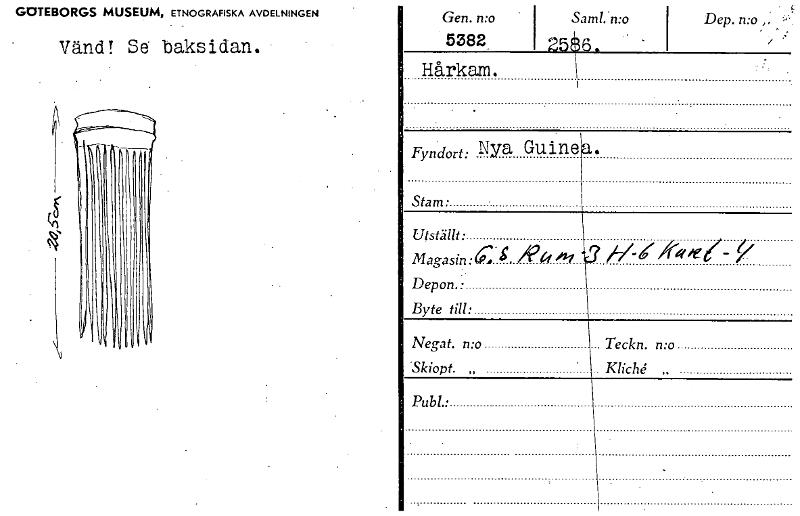 GÖTEBORGS MUSEUM, ETNOGRAFISKA AVDELNINGEN
Vänd! Se baksidan.
20,5cm
Gen. n:o Saml. n:o Dep. n:o
5382 2586.
Hårkam.
Fyndort: Nya Guinea.
Stam:
Utställt:
Magasin: G.S. Rum-3 H-6 Kart-4
Depon.:
Byte till:
Negat. n:o Teckn. n:o
Skiopt. „ Kliché „
Publ.: